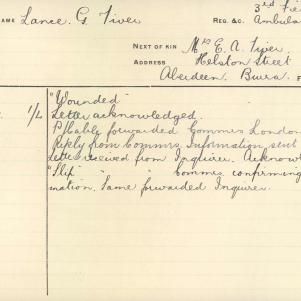 3rd Fie
NAME Lance. G. Tiver REG. &C. Ambula
NEXT OF KIN Mrs E. A. Tiver,
ADDRESS Helston Street
Aberdeen, Burra
"Wounded"
1/2 Letter acknowledged.
forwarded Commrs London
Reply from Commrs. Information sent
Letter received from Inquirer. Acknowl
"Slip" " " Commrs. confirming
mation. Same forwarded Inquirer.